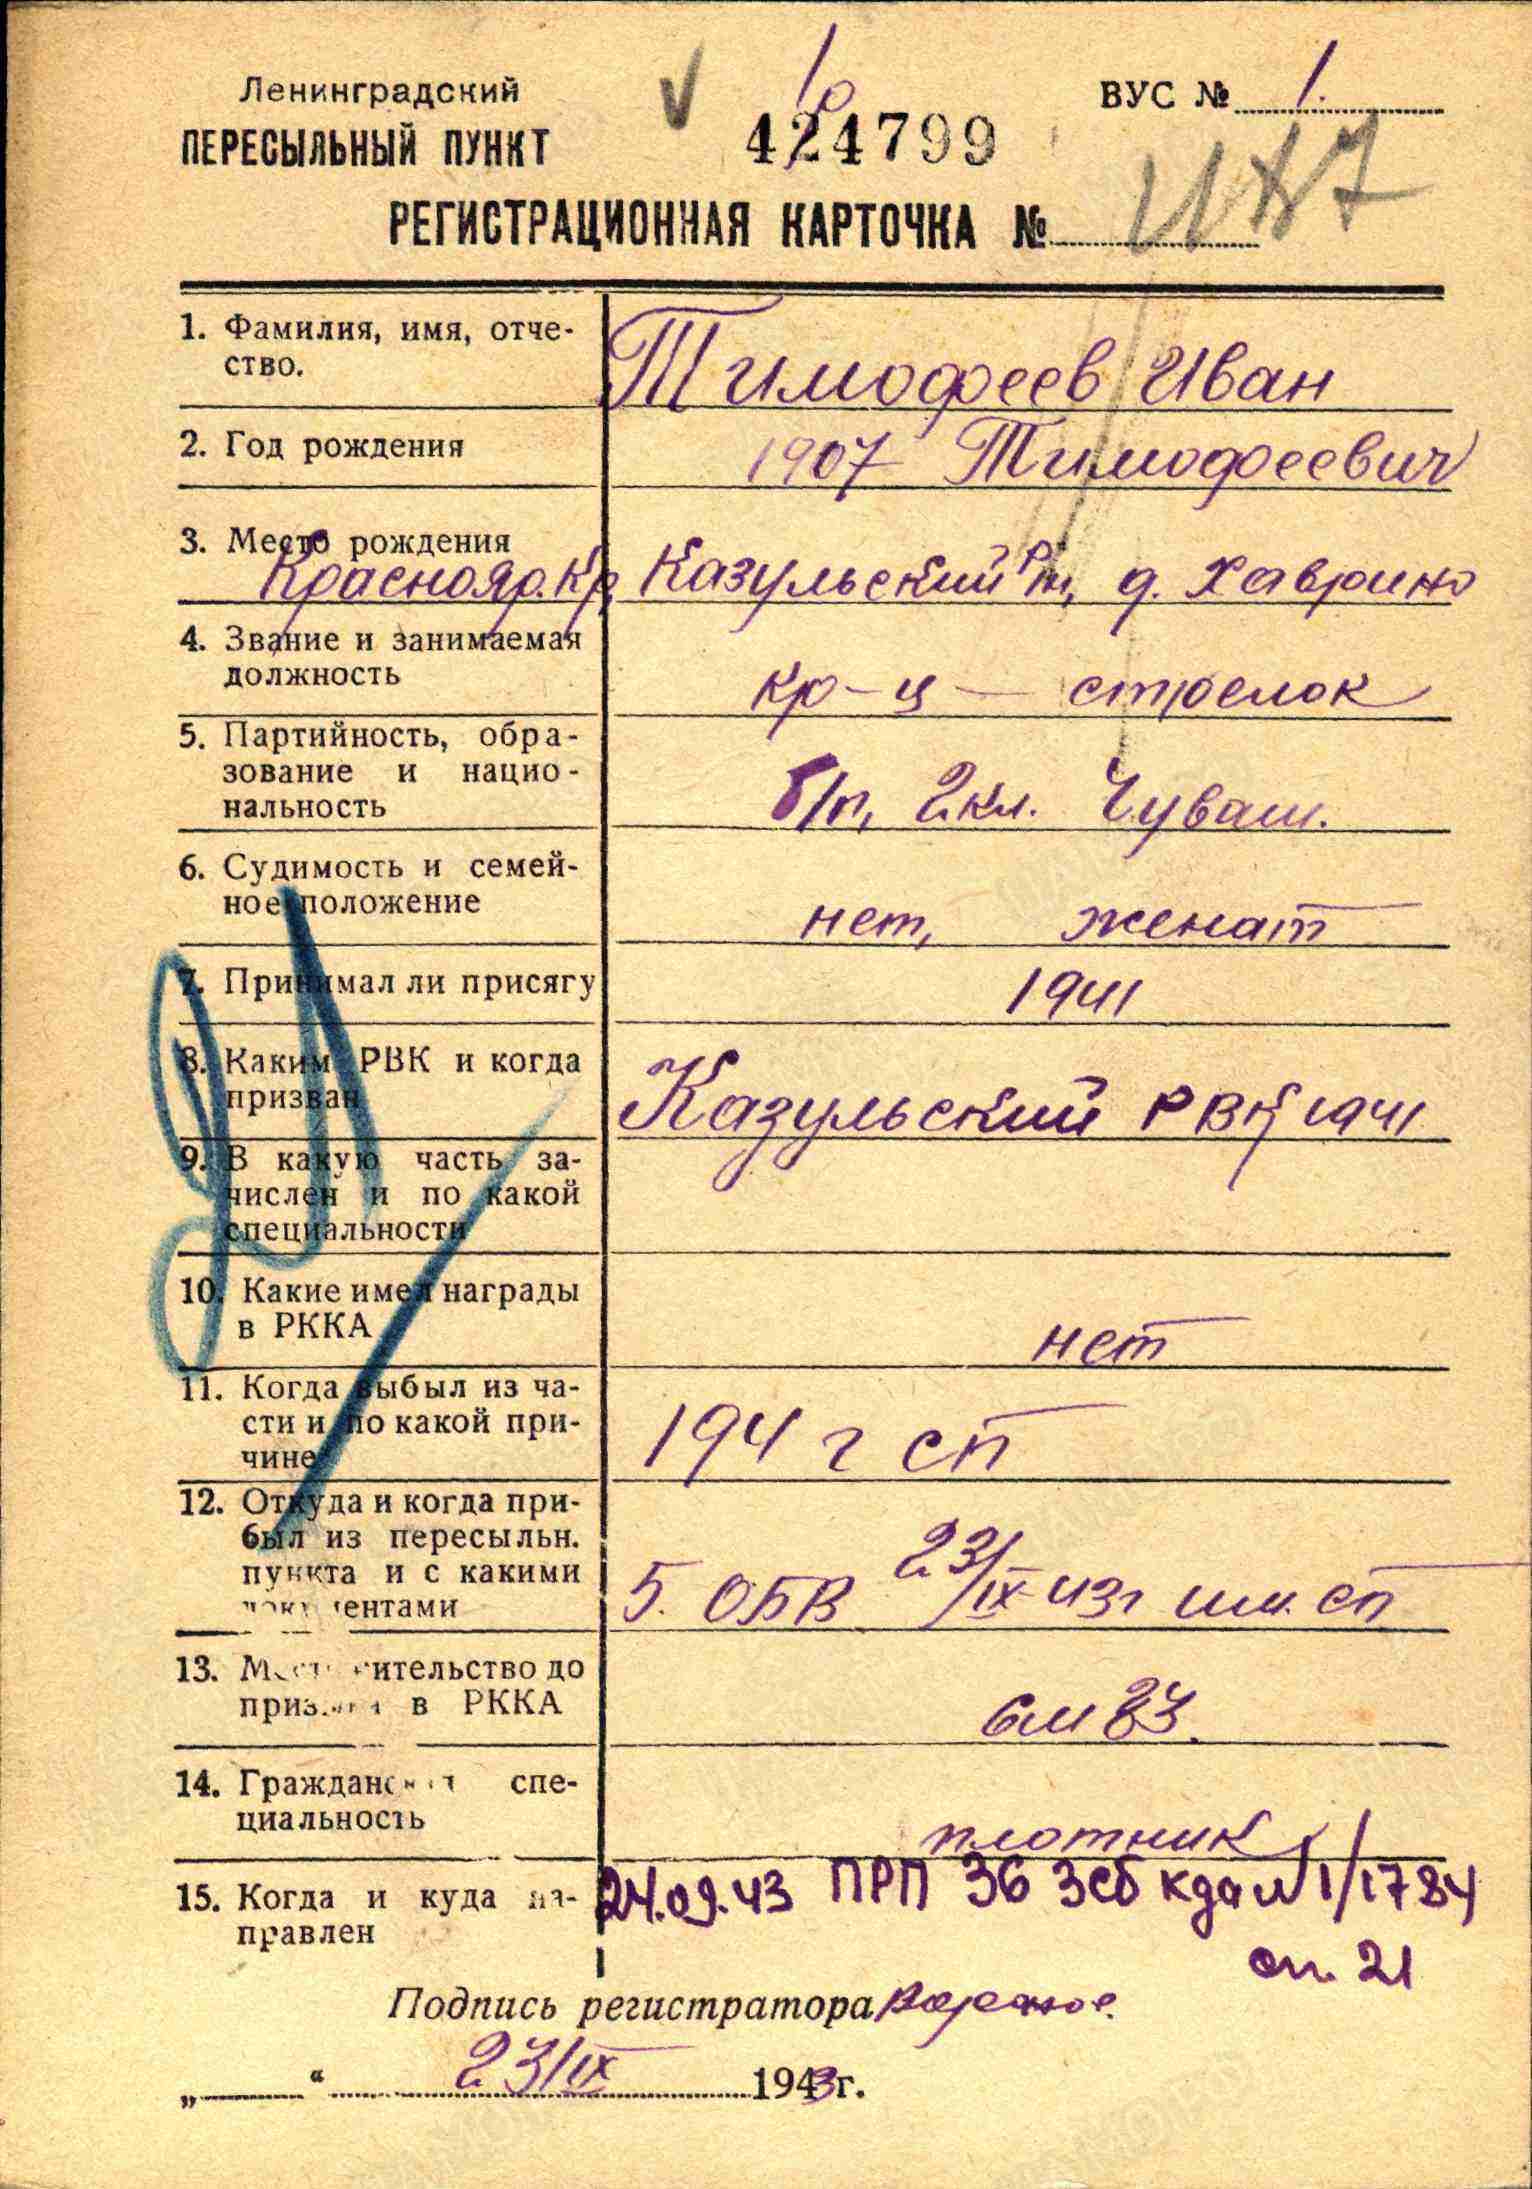 Ленинградский
ПЕРЕСЫЛЬНЫЙ ПУНКТ
424799
ВУС № 1.
РЕГИСТРАЦИОННАЯ КАРТОЧКА №
1. Фамилия, имя, отче-
ство.
Тимофеев Иван
2. Год рождения
1907 Тимофеевич
3. Место рождения
Краснояр. Кр, Казульский р-н, д. Хаврино
4. Звание и занимаемая
должность
кр-ц — стрелок
5. Партийность, обра-
зование и нацио-
нальность
б/п, 2 кл. Чуваш.
6. Судимость и семей-
ное положение
нет, женат
7. Принимал ли присягу
1941
8. Каким РВК и когда
призван
Казульский РВК 1941
9. В какую часть за-
числен и по какой
специальности
10. Какие имел награды
в РККА
нет
11. Когда выбыл из ча-
сти и по какой при-
чине
194 г сп
12. Откуда и когда при-
был из пересыльн.
пункта и с какими
документами
5. ОБВ 23/IX-43г им. сп
13. Местожительство до
призыва в РККА
см 3
14. Гражданская спе-
циальность
плотник
15. Когда и куда на-
правлен
24.09.43 ПРП 36 Зсб кда №1/1784
сп. 21
Подпись регистратора
„ “ 23/IX 1943г.